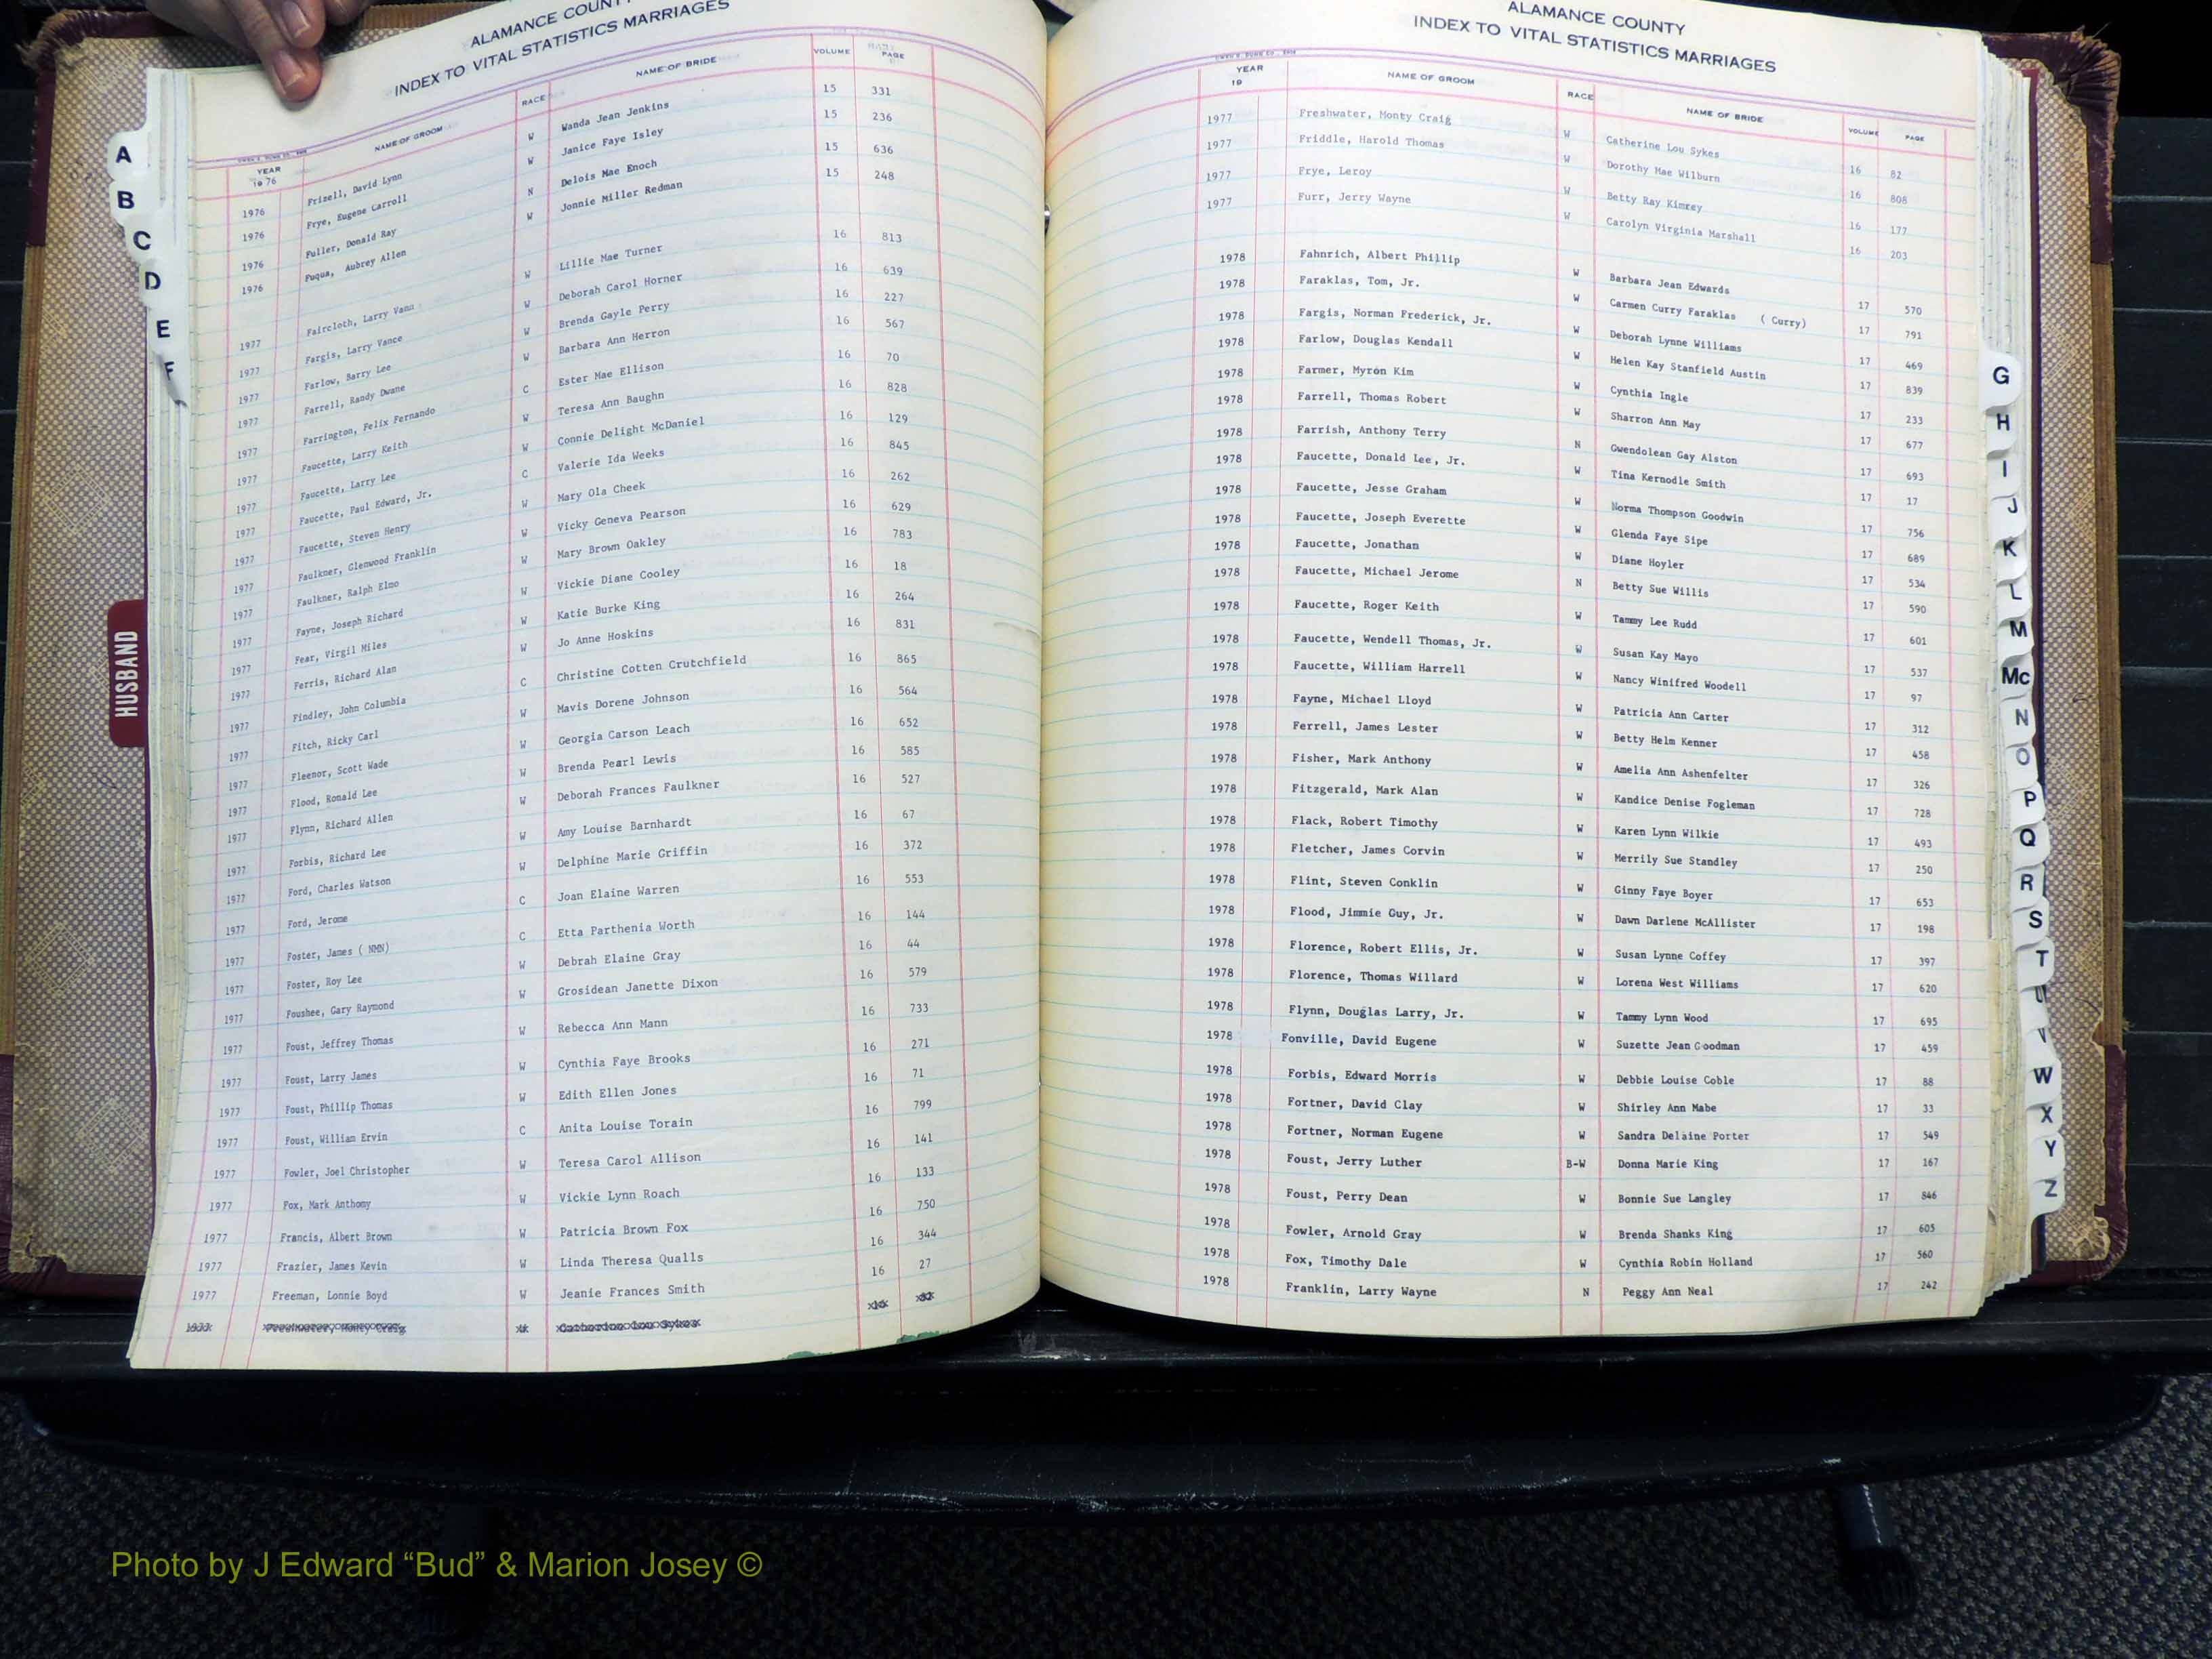 ALAMANCE COUNTY
INDEX TO VITAL STATISTICS MARRIAGES
YEAR 1976 NAME OF GROOM RACE NAME OF BRIDE VOLUME PAGE
1976 Frizell, David Lynn W Wanda Jean Jenkins 15 331
1976 Frye, Eugene Carroll W Janice Faye Isley 15 236
1976 Fuller, Donald Ray N Delois Mae Enoch 15 636
1976 Fuqua, Aubrey Allen W Jonnie Miller Redman 15 248
1977 Faircloth, Larry Vann W Lillie Mae Turner 16 813
1977 Fargis, Larry Vance W Deborah Carol Horner 16 639
1977 Farlow, Barry Lee W Brenda Gayle Perry 16 227
1977 Farrell, Randy Dwane W Barbara Ann Herron 16 567
1977 Farrington, Felix Fernando C Ester Mae Ellison 16 70
1977 Faucette, Larry Keith W Teresa Ann Baughn 16 828
1977 Faucette, Larry Lee W Connie Delight McDaniel 16 129
1977 Faucette, Paul Edward, Jr. C Valerie Ida Weeks 16 845
1977 Faucette, Steven Henry W Mary Ola Cheek 16 262
1977 Faulkner, Glenwood Franklin W Vicky Geneva Pearson 16 629
1977 Faulkner, Ralph Elmo W Mary Brown Oakley 16 783
1977 Fayne, Joseph Richard W Vickie Diane Cooley 16 18
1977 Fear, Virgil Miles W Katie Burke King 16 264
1977 Ferris, Richard Alan W Jo Anne Hoskins 16 831
1977 Findley, John Columbia C Christine Cotten Crutchfield 16 865
1977 Fitch, Ricky Carl W Mavis Dorene Johnson 16 564
1977 Fleenor, Scott Wade W Georgia Carson Leach 16 652
1977 Flood, Ronald Lee W Brenda Pearl Lewis 16 585
1977 Flynn, Richard Allen W Deborah Frances Faulkner 16 527
1977 Forbis, Richard Lee W Amy Louise Barnhardt 16 67
1977 Ford, Charles Watson W Delphine Marie Griffin 16 372
1977 Ford, Jerome C Joan Elaine Warren 16 553
1977 Foster, James ( NMN) C Etta Parthenia Worth 16 144
1977 Foster, Roy Lee W Debrah Elaine Gray 16 44
1977 Foushee, Gary Raymond W Grosidean Janette Dixon 16 579
1977 Foust, Jeffrey Thomas W Rebecca Ann Mann 16 733
1977 Foust, Larry James W Cynthia Faye Brooks 16 271
1977 Foust, Phillip Thomas W Edith Ellen Jones 16 71
1977 Foust, William Ervin C Anita Louise Torain 16 799
1977 Fowler, Joel Christopher W Teresa Carol Allison 16 141
1977 Fox, Mark Anthony W Vickie Lynn Roach 16 133
1977 Francis, Albert Brown W Patricia Brown Fox 16 750
1977 Frazier, James Kevin W Linda Theresa Qualls 16 344
1977 Freeman, Lonnie Boyd W Jeanie Frances Smith 16 27
ALAMANCE COUNTY
INDEX TO VITAL STATISTICS MARRIAGES
YEAR 19 NAME OF GROOM RACE NAME OF BRIDE VOLUME PAGE
1977 Freshwater, Monty Craig W Catherine Lou Sykes 16 82
1977 Friddle, Harold Thomas W Dorothy Mae Wilburn 16 808
1977 Frye, Leroy W Betty Ray Kimrey 16 177
1977 Furr, Jerry Wayne W Carolyn Virginia Marshall 16 203
1978 Fahnrich, Albert Phillip W Barbara Jean Edwards 17 570
1978 Faraklas, Tom, Jr. W Carmen Curry Faraklas ( Curry) 17 791
1978 Fargis, Norman Frederick, Jr. W Deborah Lynne Williams 17 469
1978 Farlow, Douglas Kendall W Helen Kay Stanfield Austin 17 839
1978 Farmer, Myron Kim W Cynthia Ingle 17 233
1978 Farrell, Thomas Robert W Sharron Ann May 17 677
1978 Farrish, Anthony Terry N Gwendolean Gay Alston 17 693
1978 Faucette, Donald Lee, Jr. W Tina Kernodle Smith 17 17
1978 Faucette, Jesse Graham W Norma Thompson Goodwin 17 756
1978 Faucette, Joseph Everette W Glenda Faye Sipe 17 689
1978 Faucette, Jonathan W Diane Hoyler 17 534
1978 Faucette, Michael Jerome N Betty Sue Willis 17 590
1978 Faucette, Roger Keith W Tammy Lee Rudd 17 601
1978 Faucette, Wendell Thomas, Jr. W Susan Kay Mayo 17 537
1978 Faucette, William Harrell W Nancy Winifred Woodell 17 97
1978 Fayne, Michael Lloyd W Patricia Ann Carter 17 312
1978 Ferrell, James Lester W Betty Helm Kenner 17 458
1978 Fisher, Mark Anthony W Amelia Ann Ashenfelter 17 326
1978 Fitzgerald, Mark Alan W Kandice Denise Fogleman 17 728
1978 Flack, Robert Timothy W Karen Lynn Wilkie 17 493
1978 Fletcher, James Corvin W Merrily Sue Standley 17 250
1978 Flint, Steven Conklin W Ginny Faye Boyer 17 653
1978 Flood, Jimmie Guy, Jr. W Dawn Darlene McAllister 17 198
1978 Florence, Robert Ellis, Jr. W Susan Lynne Coffey 17 397
1978 Florence, Thomas Willard W Lorena West Williams 17 620
1978 Flynn, Douglas Larry, Jr. W Tammy Lynn Wood 17 695
1978 Fonville, David Eugene W Suzette Jean Goodman 17 459
1978 Forbis, Edward Morris W Debbie Louise Coble 17 88
1978 Fortner, David Clay W Shirley Ann Mabe 17 33
1978 Fortner, Norman Eugene W Sandra Delaine Porter 17 549
1978 Foust, Jerry Luther B-W Donna Marie King 17 167
1978 Foust, Perry Dean W Bonnie Sue Langley 17 846
1978 Fowler, Arnold Gray W Brenda Shanks King 17 605
1978 Fox, Timothy Dale W Cynthia Robin Holland 17 560
1978 Franklin, Larry Wayne N Peggy Ann Neal 17 242
A
B
C
D
E
F
HUSBAND
G
H
I
J
K
L
M
Mc
N
O
P
Q
R
S
T
U
V
W
X
Y
Z
Photo by J Edward “Bud” & Marion Josey ©